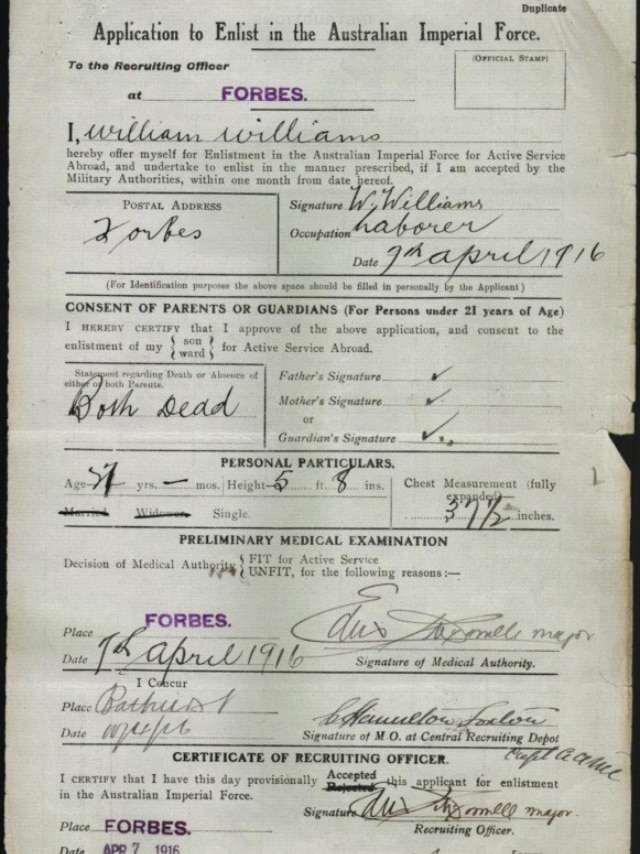 Duplicate
Application to Enlist in the Australian Imperial Force.
To the Recruiting Officer
(OFFICIAL STAMP)
at FORBES.
I, william williams
hereby offer myself for Enlistment in the Australian Imperial Force for Active Service
Abroad, and undertake to enlist in the manner prescribed, if I am accepted by the
Military Authorities, within one month from date hereof.
POSTAL ADDRESS
Forbes
Signature W. Williams
Occupation Laborer
Date 7th april 1916
(For Identification purposes the above space should be filled in personally by the Applicant)
CONSENT OF PARENTS OR GUARDIANS (For Persons under 21 years of Age)
I HEREBY CERTIFY that I approve of the above application, and consent to the
enlistment of my { son ward } for Active Service Abroad.
Statement regarding Death or Absence of
either or both Parents.
Both Dead
Father's Signature ✓
Mother's Signature ✓
or
Guardian's Signature ✓
PERSONAL PARTICULARS.
Age yrs. — mos. Height 5 ft. 8 ins.
Married Widower Single.
Chest Measurement (fully
expanded)
37½ inches.
PRELIMINARY MEDICAL EXAMINATION
Decision of Medical Authority { FIT for Active Service
UNFIT, for the following reasons :—
Place FORBES.
Date 7th april 1916
major
Signature of Medical Authority.
I Concur
Place Bathurst
Date 10/4/16
C Hamilton
Signature of M.O. at Central Recruiting Depot
Capt AAMC
CERTIFICATE OF RECRUITING OFFICER.
I CERTIFY that I have this day provisionally Accepted Rejected this applicant for enlistment
in the Australian Imperial Force.
Signature major.
Recruiting Officer.
Place FORBES.
Date APR 7 1916